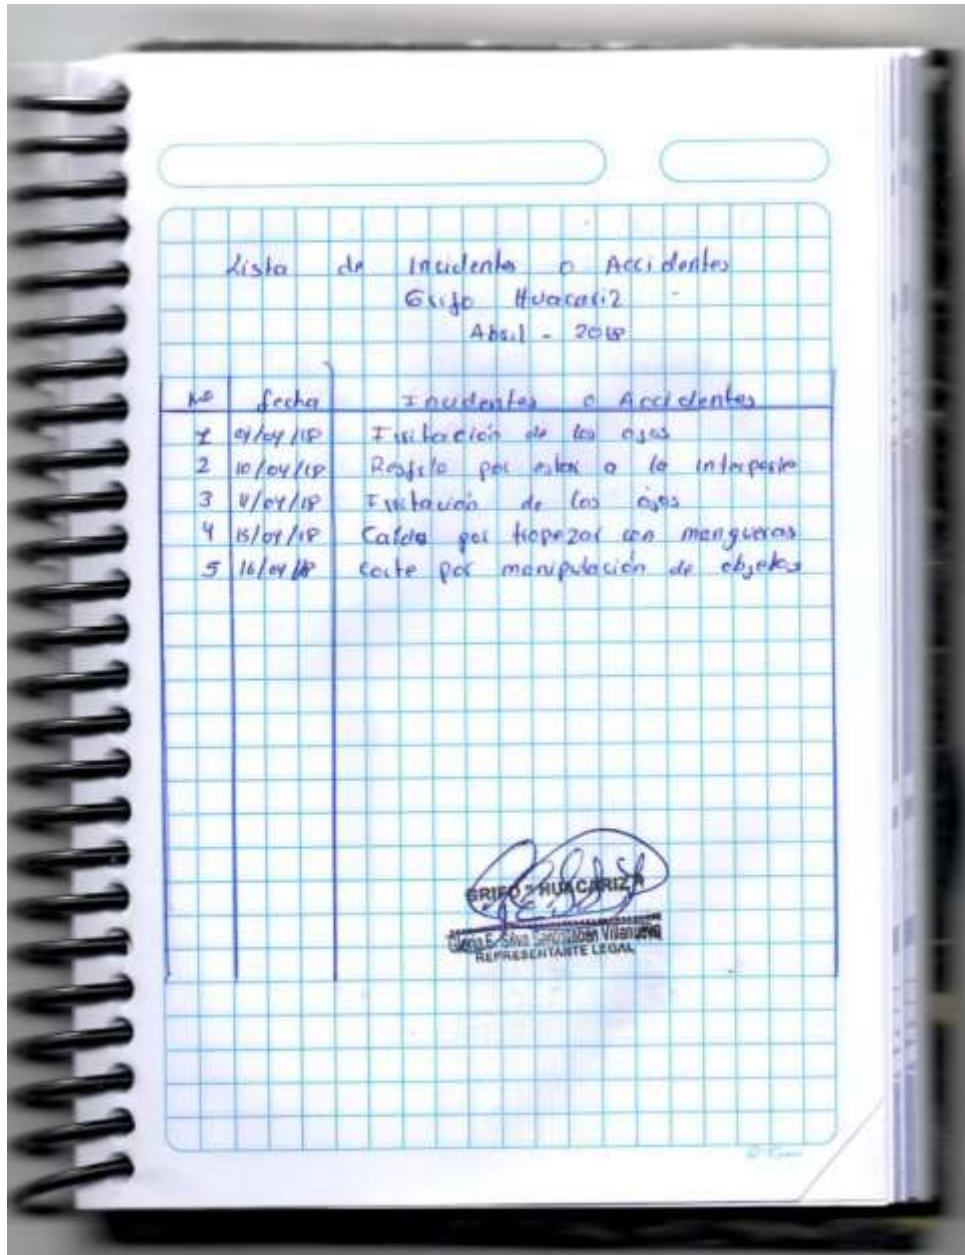 Lista de Incidentes o Accidentes
Grifo Huacariz
Abril - 2018
Nº fecha Incidentes o Accidentes
1 /04/18 Irritación de los ojos
2 10/04/18 Resfrío por estar a la interperie
3 11/04/18 Irritación de los ojos
4 15/04/18 Caída por tropezar con mangueras
5 16/04/18 Corte por manipulación de objetos
GRIFO "HUACARIZ"
E. Silva Santisteban Villanueva
REPRESENTANTE LEGAL